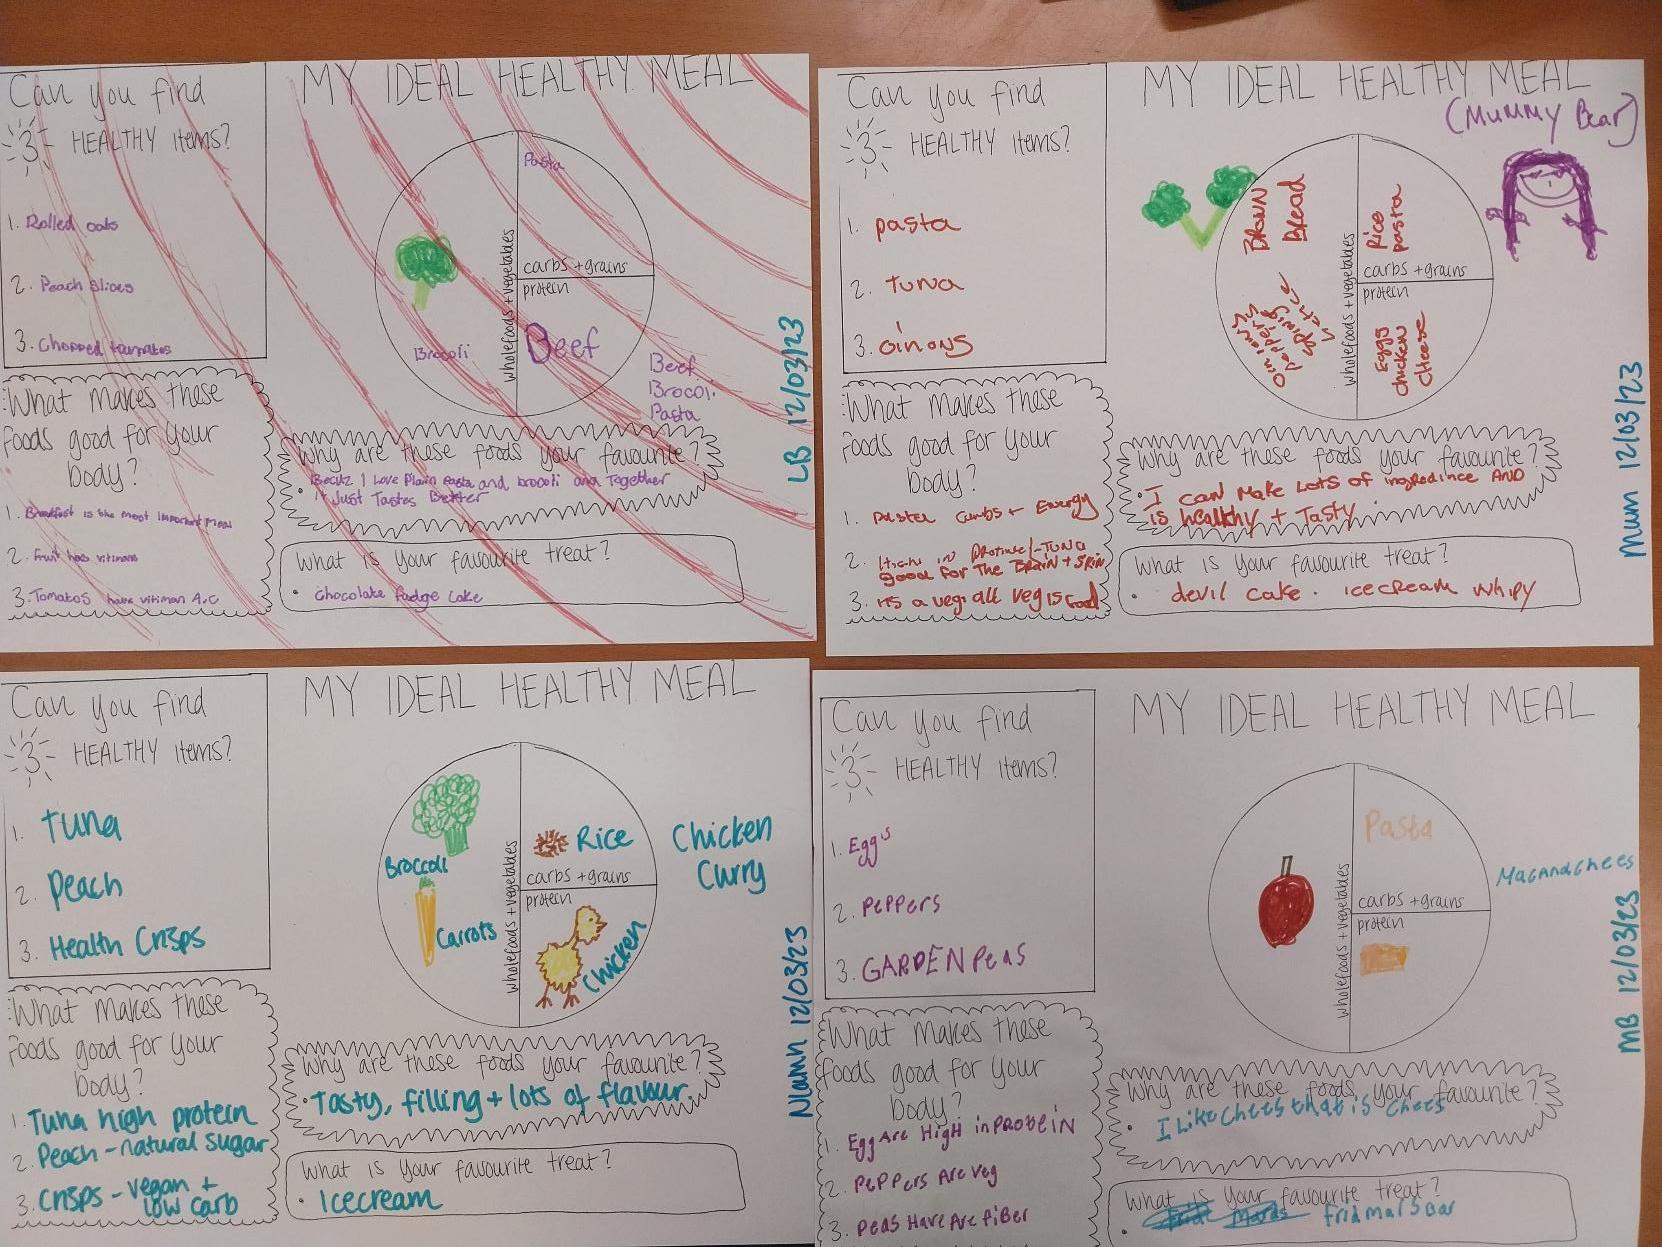 Can you find
3 HEALTHY items?
1. Rolled oats
2. Peach Slices
3. Chopped tomatos
What makes these
foods good for your
body?
1. Breakfast is the most important meal
2. Fruit has vitimans
3. Tomatos have vitiman A,C
MY IDEAL HEALTHY MEAL
Pasta
carbs + grains
protein
wholefoods + vegetables
Brocoli
Beef
Beef
Brocoli
Pasta
Why are these foods your favourite?
I Love Plain Pasta and brocoli and Together
it Just Tastes Better
What is your favourite treat?
Chocolate fudge Cake
LB 12/03/23
Can you find
3 HEALTHY items?
1. pasta
2. Tuna
3. oinons
What makes these
foods good for your
body?
1. Pasta carbs + Energy
2. in Protine/-Tuna
good for the Brain + Skin
3. its a veg, all veg is Good
MY IDEAL HEALTHY MEAL
(Mummy Bear)
Brown
Bread
Rice
pasta
carbs + grains
protein
wholefoods + vegetables
Eggs
chicken
cheese
Why are these foods your favourite?
I can Make Lots of ingredince AND
is healthy + Tasty
What is your favourite treat?
devil cake. icecream whipy
Mum 12/03/23
Can you find
3 HEALTHY items?
1. Tuna
2. Peach
3. Health Crisps
What makes these
foods good for your
body?
1. Tuna high protein
2. Peach - natural sugar
3. Crisps - vegan +
low carb
MY IDEAL HEALTHY MEAL
Rice
Broccoli
carbs + grains
protein
wholefoods + vegetables
Carrots
Chicken
Chicken
Curry
Why are these foods your favourite?
Tasty, filling + lots of flavour.
What is your favourite treat?
Icecream
12/03/23
Can you find
3 HEALTHY items?
1. Eggs
2. PePPeRs
3. GARDEN Peas
What makes these
foods good for your
body?
1. Egg Are High in PROteiN
2. PePPeRs Are veg
3. Peas Have Are fiBer
MY IDEAL HEALTHY MEAL
Pasta
carbs + grains
protein
wholefoods + vegetables
MacAndchees
Why are these foods your favourite?
I Like Chees that is chees
What is your favourite treat?
frid mars Bar
MB 12/03/23